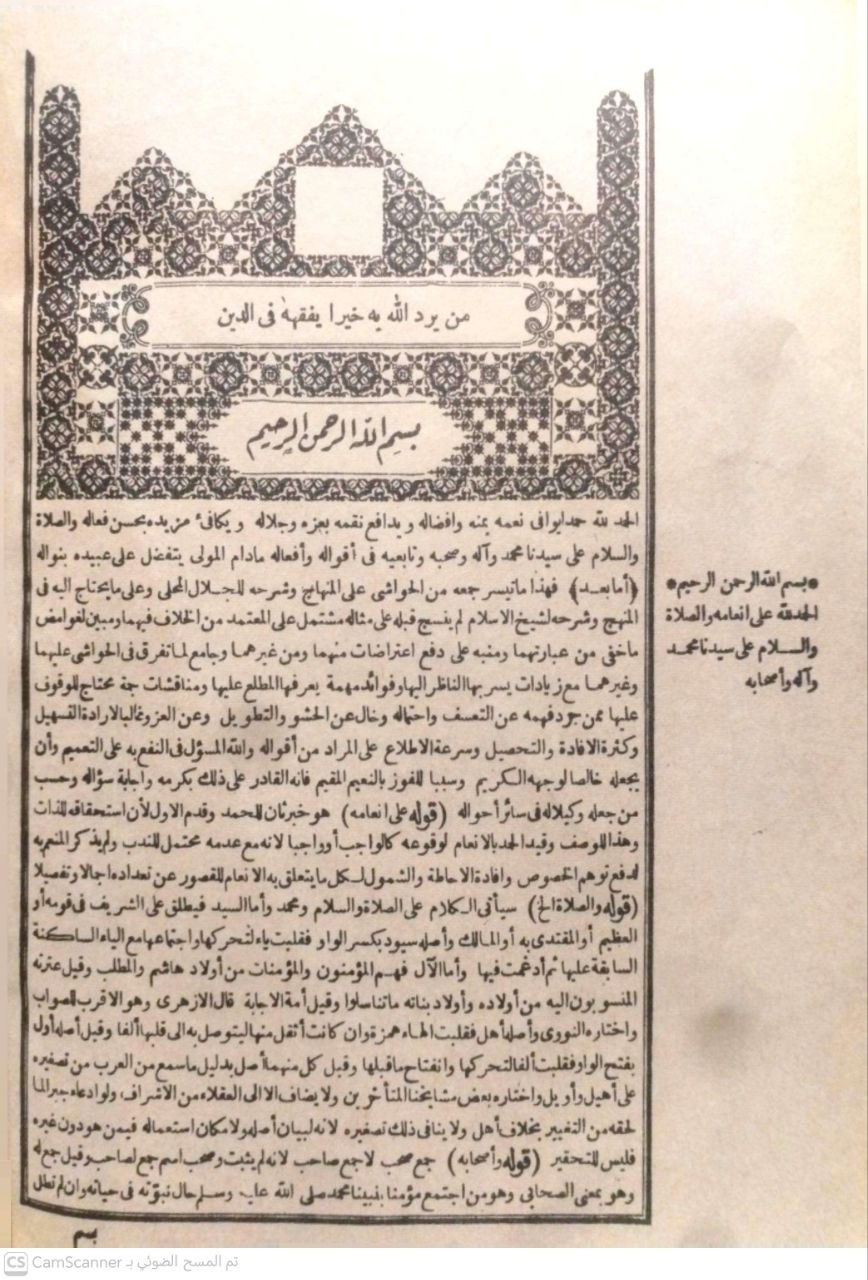 من يرد الله به خيرا يفقهه فى الدين
بسم الله الرحمن الرحيم
الحمد لله حمدا يوافى نعمه بمنه وافضاله ويدافع نقمه بعزه وجلاله ويكافئ مزيده بحسن فعاله والصلاة
والسلام على سيدنا محمد وآله وصحبه وتابعيه فى أقواله وأفعاله مادام المولى يتفضل على عبيده بنواله
(أما بعد) فهذا ما تيسر جمعه من الحواشى على المنهاج وشرحه للجلال المحلى وعلى ما يحتاج اليه فى
المنهج وشرحه لشيخ الاسلام لم ينسج قبله على مثاله مشتمل على المعتمد من الخلاف فيهما ومبين لغوامض
ماخفى من عبارتهما ومنبه على دفع اعتراضات منهما ومن غيرهما وجامع لما تفرق فى الحواشى عليهما
وغيرهما مع زيادات يسر بها الناظر اليها وفوائد مهمة يعرفها المطلع عليها ومناقشات جمة محتاج للوقوف
عليها ممن جود فهمه عن التعسف واحتماله وخال عن الحشو والتطويل وعن العزو غالبا لارادة التسهيل
وكثرة الافادة والتحصيل وسرعة الاطلاع على المراد من أقواله والله المسؤل فى النفع به على التعميم وأن
يجعله خالصا لوجهه الكريم وسببا للفوز بالنعيم المقيم فانه القادر على ذلك بكرمه واجابة سؤاله وحسب
من جعله وكيلا له فى سائر أحواله (قوله على انعامه) هو خبر ثان للحمد وقدم الاول لأن استحقاقه للذات
وهذا للوصف وقيد الحمد بالانعام لوقوعه كالواجب أو واجبا لانه مع عدمه محتمل للندب ولم يذكر المنعم به
لدفع توهم الخصوص وافادة الاحاطة والشمول لكل ما يتعلق به الانعام للقصور عن تعداده اجمالا وتفصيلا
(قوله والصلاة الخ) سيأتى الكلام على الصلاة والسلام ومحمد وأما السيد فيطلق على الشريف فى قومه أو
العظيم أو المقتدى به أو المالك وأصله سيود بكسر الواو فقلبت ياء لتحركها واجتماعها مع الياء الساكنة
السابقة عليها ثم أدغمت فيها وأما الآل فهم المؤمنون والمؤمنات من أولاد هاشم والمطلب وقيل عترته
المنسوبون اليه من أولاده وأولاد بناته ما تناسلوا وقيل أمة الاجابة قال الازهرى وهو الاقرب للصواب
واختاره النووى وأصله أهل فقلبت الهاء همزة وان كانت أثقل منها ليتوصل به الى قلبها ألفا وقيل أصله أول
بفتح الواو فقلبت ألفا لتحركها وانفتاح ما قبلها وقيل كل منهما أصل بدليل ما سمع من العرب من تصغيره
على أهيل وأويل واختاره بعض مشايخنا المتأخرين ولا يضاف الا الى العقلاء من الاشراف ولو ادعاء جبرا لما
لحقه من التغيير بخلاف أهل ولا ينافى ذلك تصغيره لانه لبيان أصله ولامكان استعماله فيمن هو دون غيره
فليس للتحقير (قوله وأصحابه) جمع صحب لا جمع صاحب لانه لم يثبت وصحب اسم جمع لصاحب وقيل جمع له
وهو بمعنى الصحابى وهو من اجتمع مؤمنا بنبينا محمد صلى الله عليه وسلم حال نبوته فى حياته وان لم تطل
بسم
*بسم الله الرحمن الرحيم*
الحمد لله على انعامه والصلاة
والسلام على سيدنا محمد
وآله وأصحابه
تم المسح الضوئي بـ CamScanner
CS